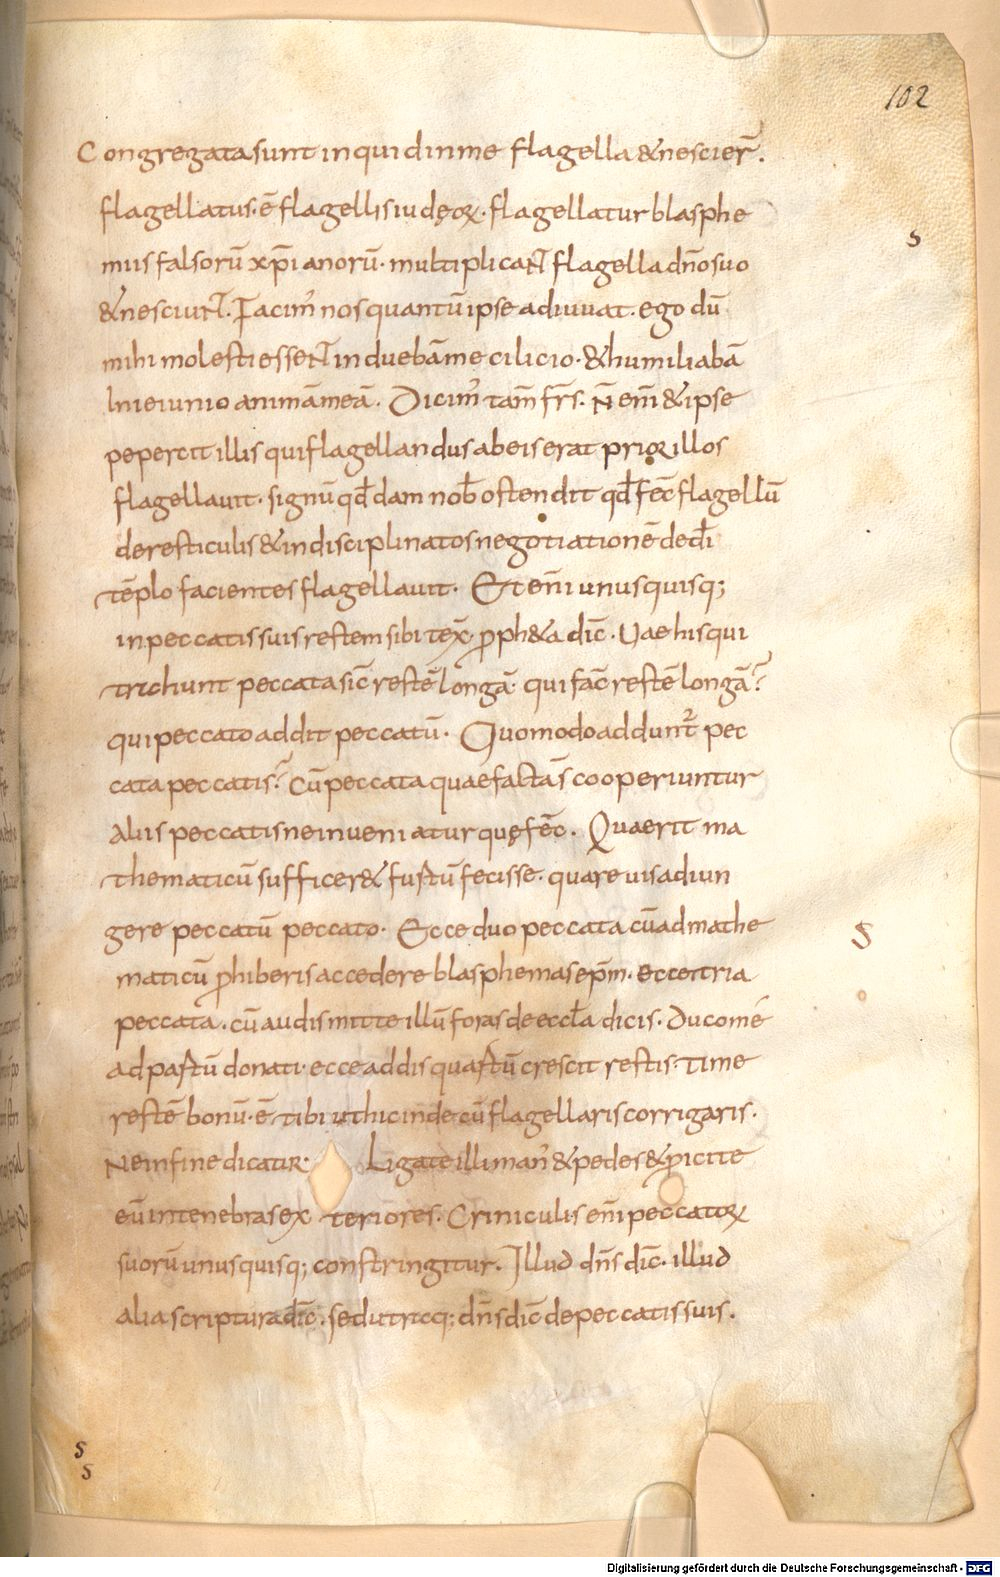 102
Congregata sunt inquid in me flagella & nescier̄.
flagellatus·ē flagellis iudęoꝝ· flagellatur blasphe
miis falsorū xp̄ianorū· multiplicaN̄T flagella dn̄o suo
& nesciuN̄T. Facim᾽ nos quantū ipse adiuuat. ego dū
mihi molesti esseNT induebā me cilicio· & humiliabā
In ieiunio animā meā. Dicim᾽ tam̄ fr̄s. Nen̄i & ipse
pepercit illis qui flagellandus ab eis erat prioꝝ illos
flagellauit· signū qd̄dam nob̄ ostendit qd̄ fec̄ flagellū
de resticulis & indisciplinatos negotiationē de dī
tēplo facientes flagellauit· Et en̄i unusquisq;
in peccatis suis restem sibi tex̄. ꝓph&a dic̄· Uae his qui
trahunt peccata sic̄ restē longā· qui fac̄ restē longā?
qui peccato addit peccatū· Quomodo addunt᾽ pec
cata peccatis? Cū peccata quae facta s̄ cooperiuntur
aliis peccatis ne inueniatur quę fec̄. Quaerit ma
thematicū sufficer& fustū fecisse· quare uis adiun
gere peccatū peccato· Ecce duo peccata cū ad mathe
maticū ꝓhiberis accedere blasphemas ep̄m· ecce tria
peccata. cū audis mitte illū foras de eccl̄a dicis. Duco mē
ad partū donati· ecce addis quartū crescit restis· time
restē bonū·ē tibi ut hic inde cū flagellaris corrigaris·
Ne in fine dicatur· Ligate illi man᾽ & pedes & ꝓicite
eū in tenebras exteriores. Criniculis en̄i peccatoꝝ
suorū unusquisq; constringitur. Illud dn̄s dic̄· illud
alia scriptura dic̄. sed utrūq; dn̄s dic̄ de peccatis suis.
s
s
s
s
Digitalisierung gefördert durch die Deutsche Forschungsgemeinschaft - DFG